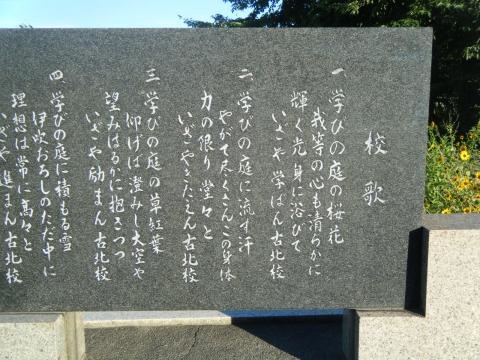 校歌
一、学びの庭の桜花
我等の心も清らかに
輝く光身に浴びて
いざや学ばん古北校
二、学びの庭に流す汗
やがて尽くさんこの身体
力の限り堂々と
いざやきたえん古北校
三、学びの庭の草紅葉
仰げば澄みし大空や
望みはるかに抱きつつ
いざや励まん古北校
四、学びの庭に積もる雪
伊吹おろしのただ中に
理想は常に高々と
いざや進まん古北校